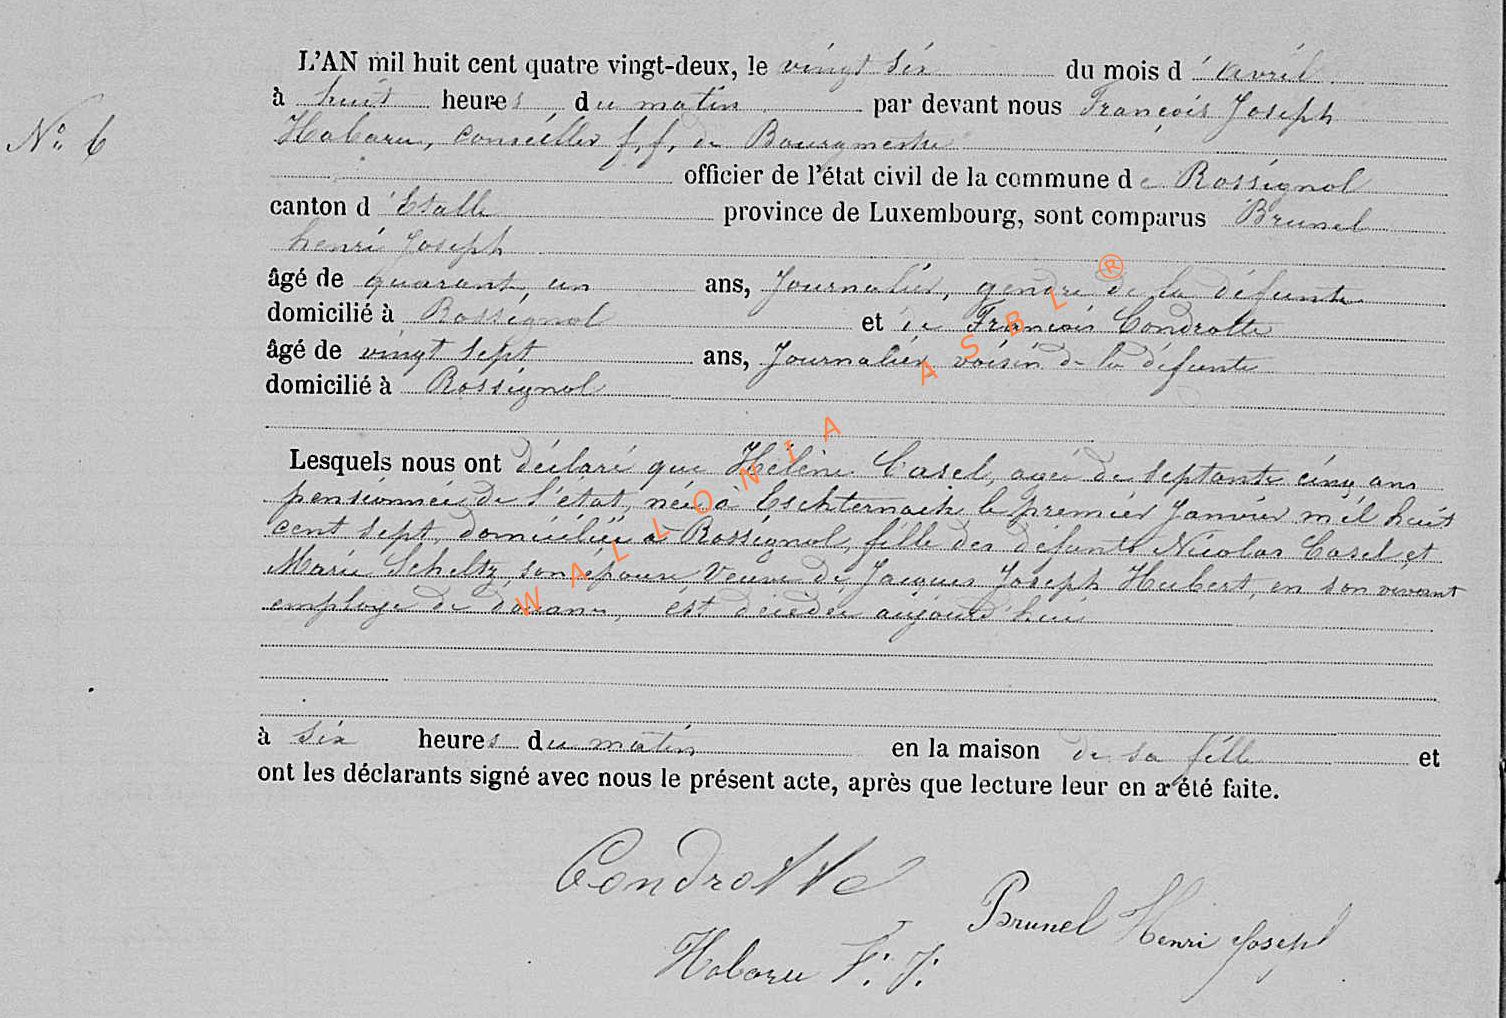 L'AN mil huit cent quatre vingt-deux, le vingt six du mois d'avril
à huit heures du matin par devant nous François Joseph
N° 6
Habaru, conseiller f,f, de Bourgmestre
officier de l'état civil de la commune de Rossignol
canton d'Etalle province de Luxembourg, sont comparus Brunel
henri Joseph
âgé de quarante un ans, Journalier, gendre de la défunte
domicilié à Rossignol et de François Condrotte
âgé de vingt sept ans, Journalier voisin de la défunte
domicilié à Rossignol
Lesquels nous ont déclaré que Hélène Casel, agée de septante cinq ans
pensionnée de l'état, née à Eschternach le premier Janvier mil huit
cent sept, domiciliée à Rossignol, fille des défunts Nicolas Casel et
Marie Scheltz, son épouse Veuve de Jacques Joseph Hubert, en son vivant
employé de douane, est décédée aujourd'hui
à six heures du matin en la maison de sa fille et
ont les déclarants signé avec nous le présent acte, après que lecture leur en a été faite.
Condrotte
Brunel Henri Joseph
Habaru F. J.
WALLONIA ASBL ®